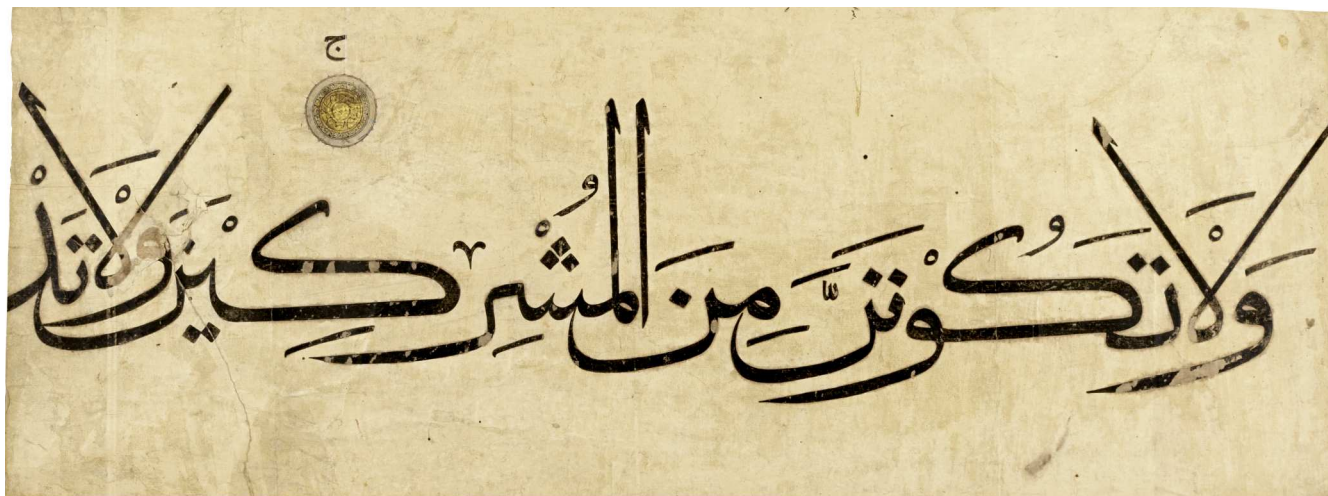 ج
وَلَا تَكُوْنَنَّ مِنَ الْمُشْرِكِيْنَ وَلَا تَدْ